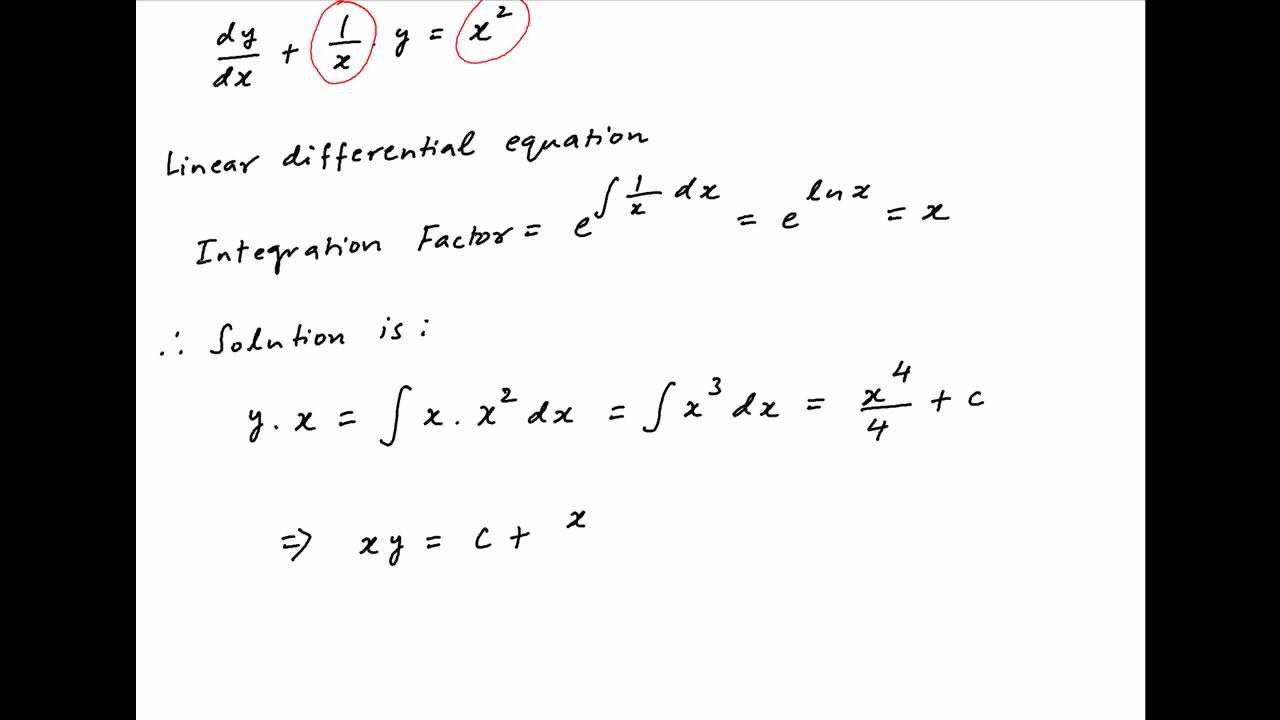 dy/dx + 1/x · y = x²
Linear differential equation
Integration Factor = e^(∫ 1/x dx) = e^(ln x) = x
∴ Solution is :
y . x = ∫ x . x² dx = ∫ x³ dx = x⁴/4 + c
⇒ xy = c + x